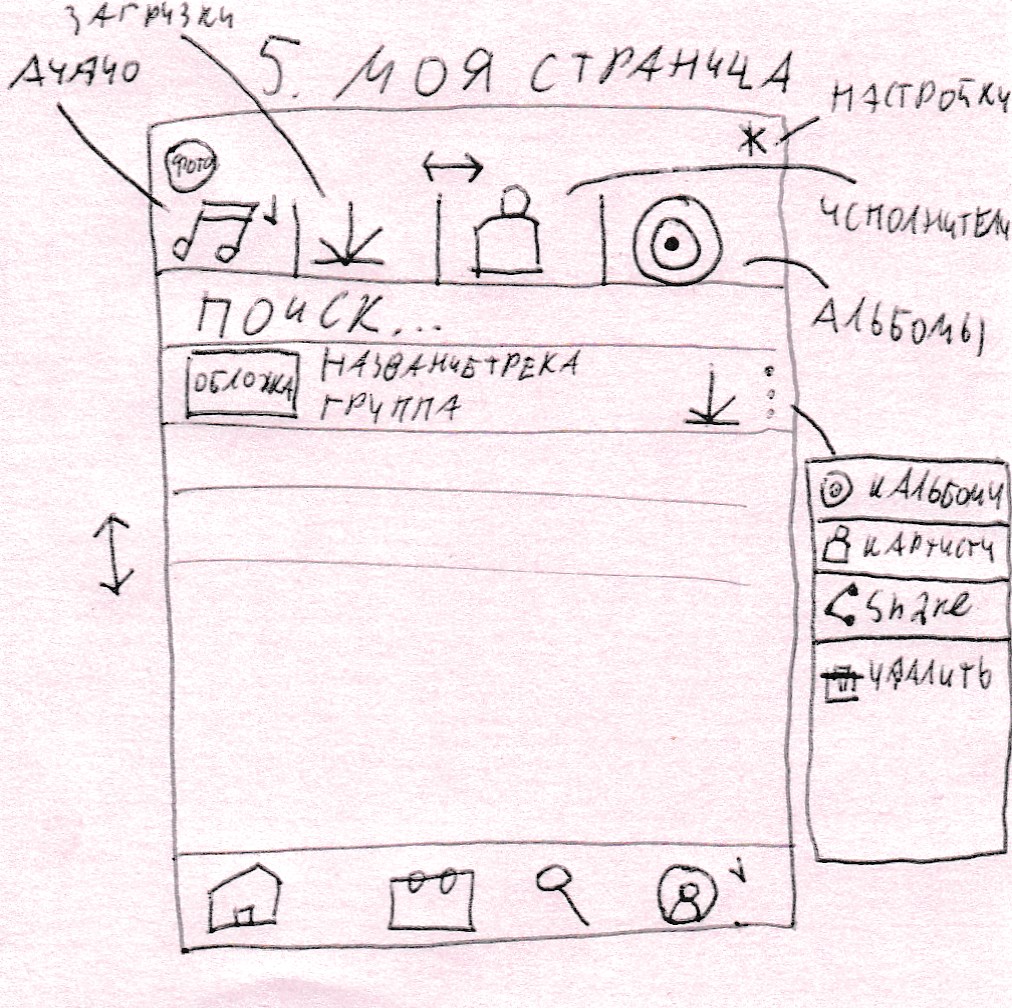 ЗАГРУЗКИ
5. МОЯ СТРАНИЦА
АУДИО
НАСТРОЙКИ
ФОТО
ИСПОЛНИТЕЛИ
ПОИСК...
АЛЬБОМЫ
ОБЛОЖКА
НАЗВАНИЕ ТРЕКА
ГРУППА
К АЛЬБОМУ
К АРТИСТУ
Share
УДАЛИТЬ